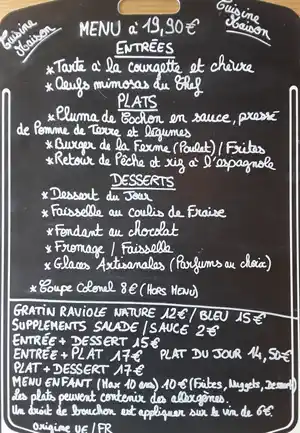 Cuisine Maison
Cuisine Maison
MENU à 19,90€
ENTRÉES
* Tarte à la courgette et chèvre
* Oeufs mimosas du Chef
PLATS
* Pluma de Cochon en sauce, pressé
de Pomme de Terre et légumes
* Burger de la Ferme (Poulet) / Frites
* Retour de Pêche et riz à l'espagnole
DESSERTS
* Dessert du Jour
* Faisselle au coulis de Fraise
* Fondant au chocolat
* Fromage / Faisselle
* Glaces Artisanales (Parfums au choix)
* Coupe Colonel 8€ (HORS MENU)
GRATIN RAVIOLE NATURE 12€ / BLEU 15€
SUPPLEMENTS SALADE / SAUCE 2€
ENTRÉE + DESSERT 15€
ENTRÉE + PLAT 17€ PLAT DU JOUR 14,50€
PLAT + DESSERT 17€
MENU ENFANT (Max 10 ans) 10€ (Frites, Nuggets, Dessert)
Les plats peuvent contenir des allergènes.
Un droit de bouchon est appliquer sur le vin de 6€.
Origine UE/FR